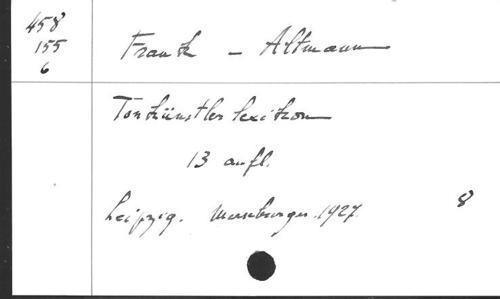 458
155
6
Franck – Altmann
Tonkünstler lexikon
13 aufl.
Leipzig. Merseburger. 1927.
8